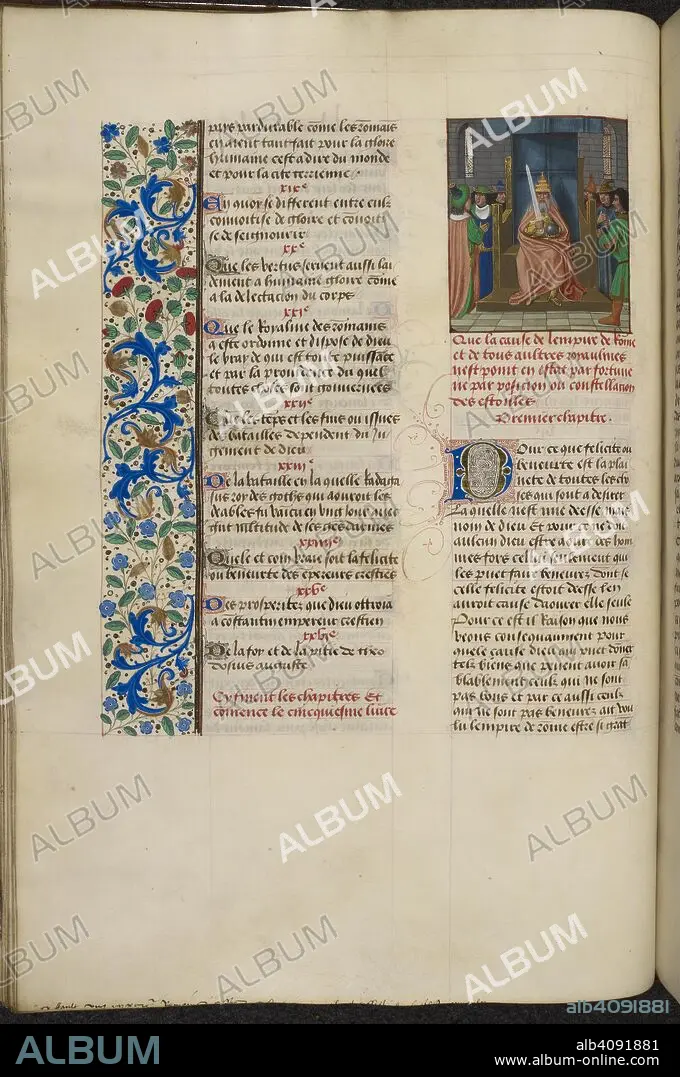 pays pardurable come les romais
humaine cest a dire du monde
et pour la cite terrienne
xixe
En quoy se different entre eulx
couvoitise de gloire et couvoiti
se de seignourir
xxe
Que les vertus servent aussi lai
dement a humaine gloire come
a la delectacion du corps
xxie
Que le Royalme des romains
a este ordonne et dispose de dieu
le vray de qui est toute puissace
et par la providence du quel
toutes choses sont gouvernees
xxiie
Que les teps et les fins ou issues
des batailles dependent du Ju
gement de dieu
xxiiie
De la bataille en la quelle Radaga
sus roy des goths qui aouroit les
deables fu vaicu en ung Jour avec
xxiiiie
Quele et com vraie soit la felicite
ou beneurte des epereurs crestiens
xxve
Des prosperitez que dieu ottroia
a costantin empereur crestien
xxvie
De la foy et de la pitie de theo
dosius auguste
Cy finent les chapitres Et
comence le cincquiesme livre
Que la cause de lempire de Rome
et de tous aultres royaulmes
nest point en estat par fortune
ne par posicion ou constellacion
des estoilles
Premier chapitre.
Pour ce que felicite ou
beneurte est la plai
nete de toutes les cho
ses qui sont a desirer
La quelle nest mie deesse mais
nom de dieu Et pour ce
aulcun dieu estre aoure des hom
mes fors cellui seulement qui
les puet faire beneurez dont se
celle felicite estoit deesse len
auroit cause daourer elle seule
Pour ce est il Raison que nous
veons consequamment pour
quele cause dieu qui puet doner
telz biens que peuent avoir sa
blablement ceulx qui ne sont
pas bons et par ce aussi ceulx
qui ne sont pas beneurez ait vou
lu lempire de rome estre si grat
ALBUM
alb4091881
ALBUM
alb4091881
www.album-online.com